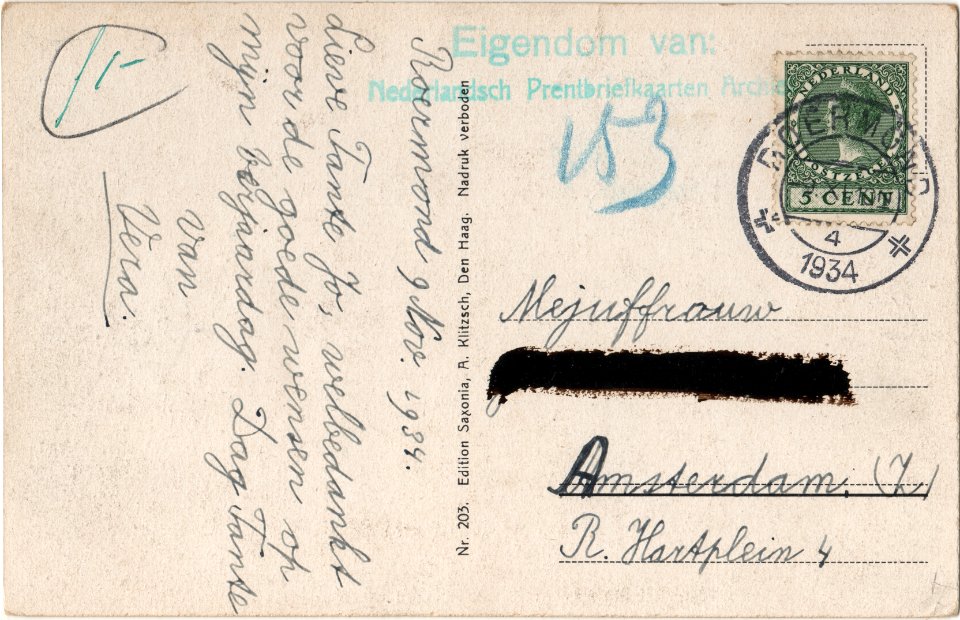 Roermond 9 Nov. 1934.
Lieve Tante Jo, welbedankt
voor de goede wensen op
mijn verjaardag. Dag Tante
van
Vera.
Nr. 203. Edition Saxonia, A. Klitzsch, Den Haag. Nadruk verboden
Eigendom van:
Nederlandsch Prentbriefkaarten Archie
153
NEDERLAND
POSTZEGEL
5 CENT
ROERMOND
4
1934
Mejuffrouw
Amsterdam. (Z.)
R. Hartplein 4